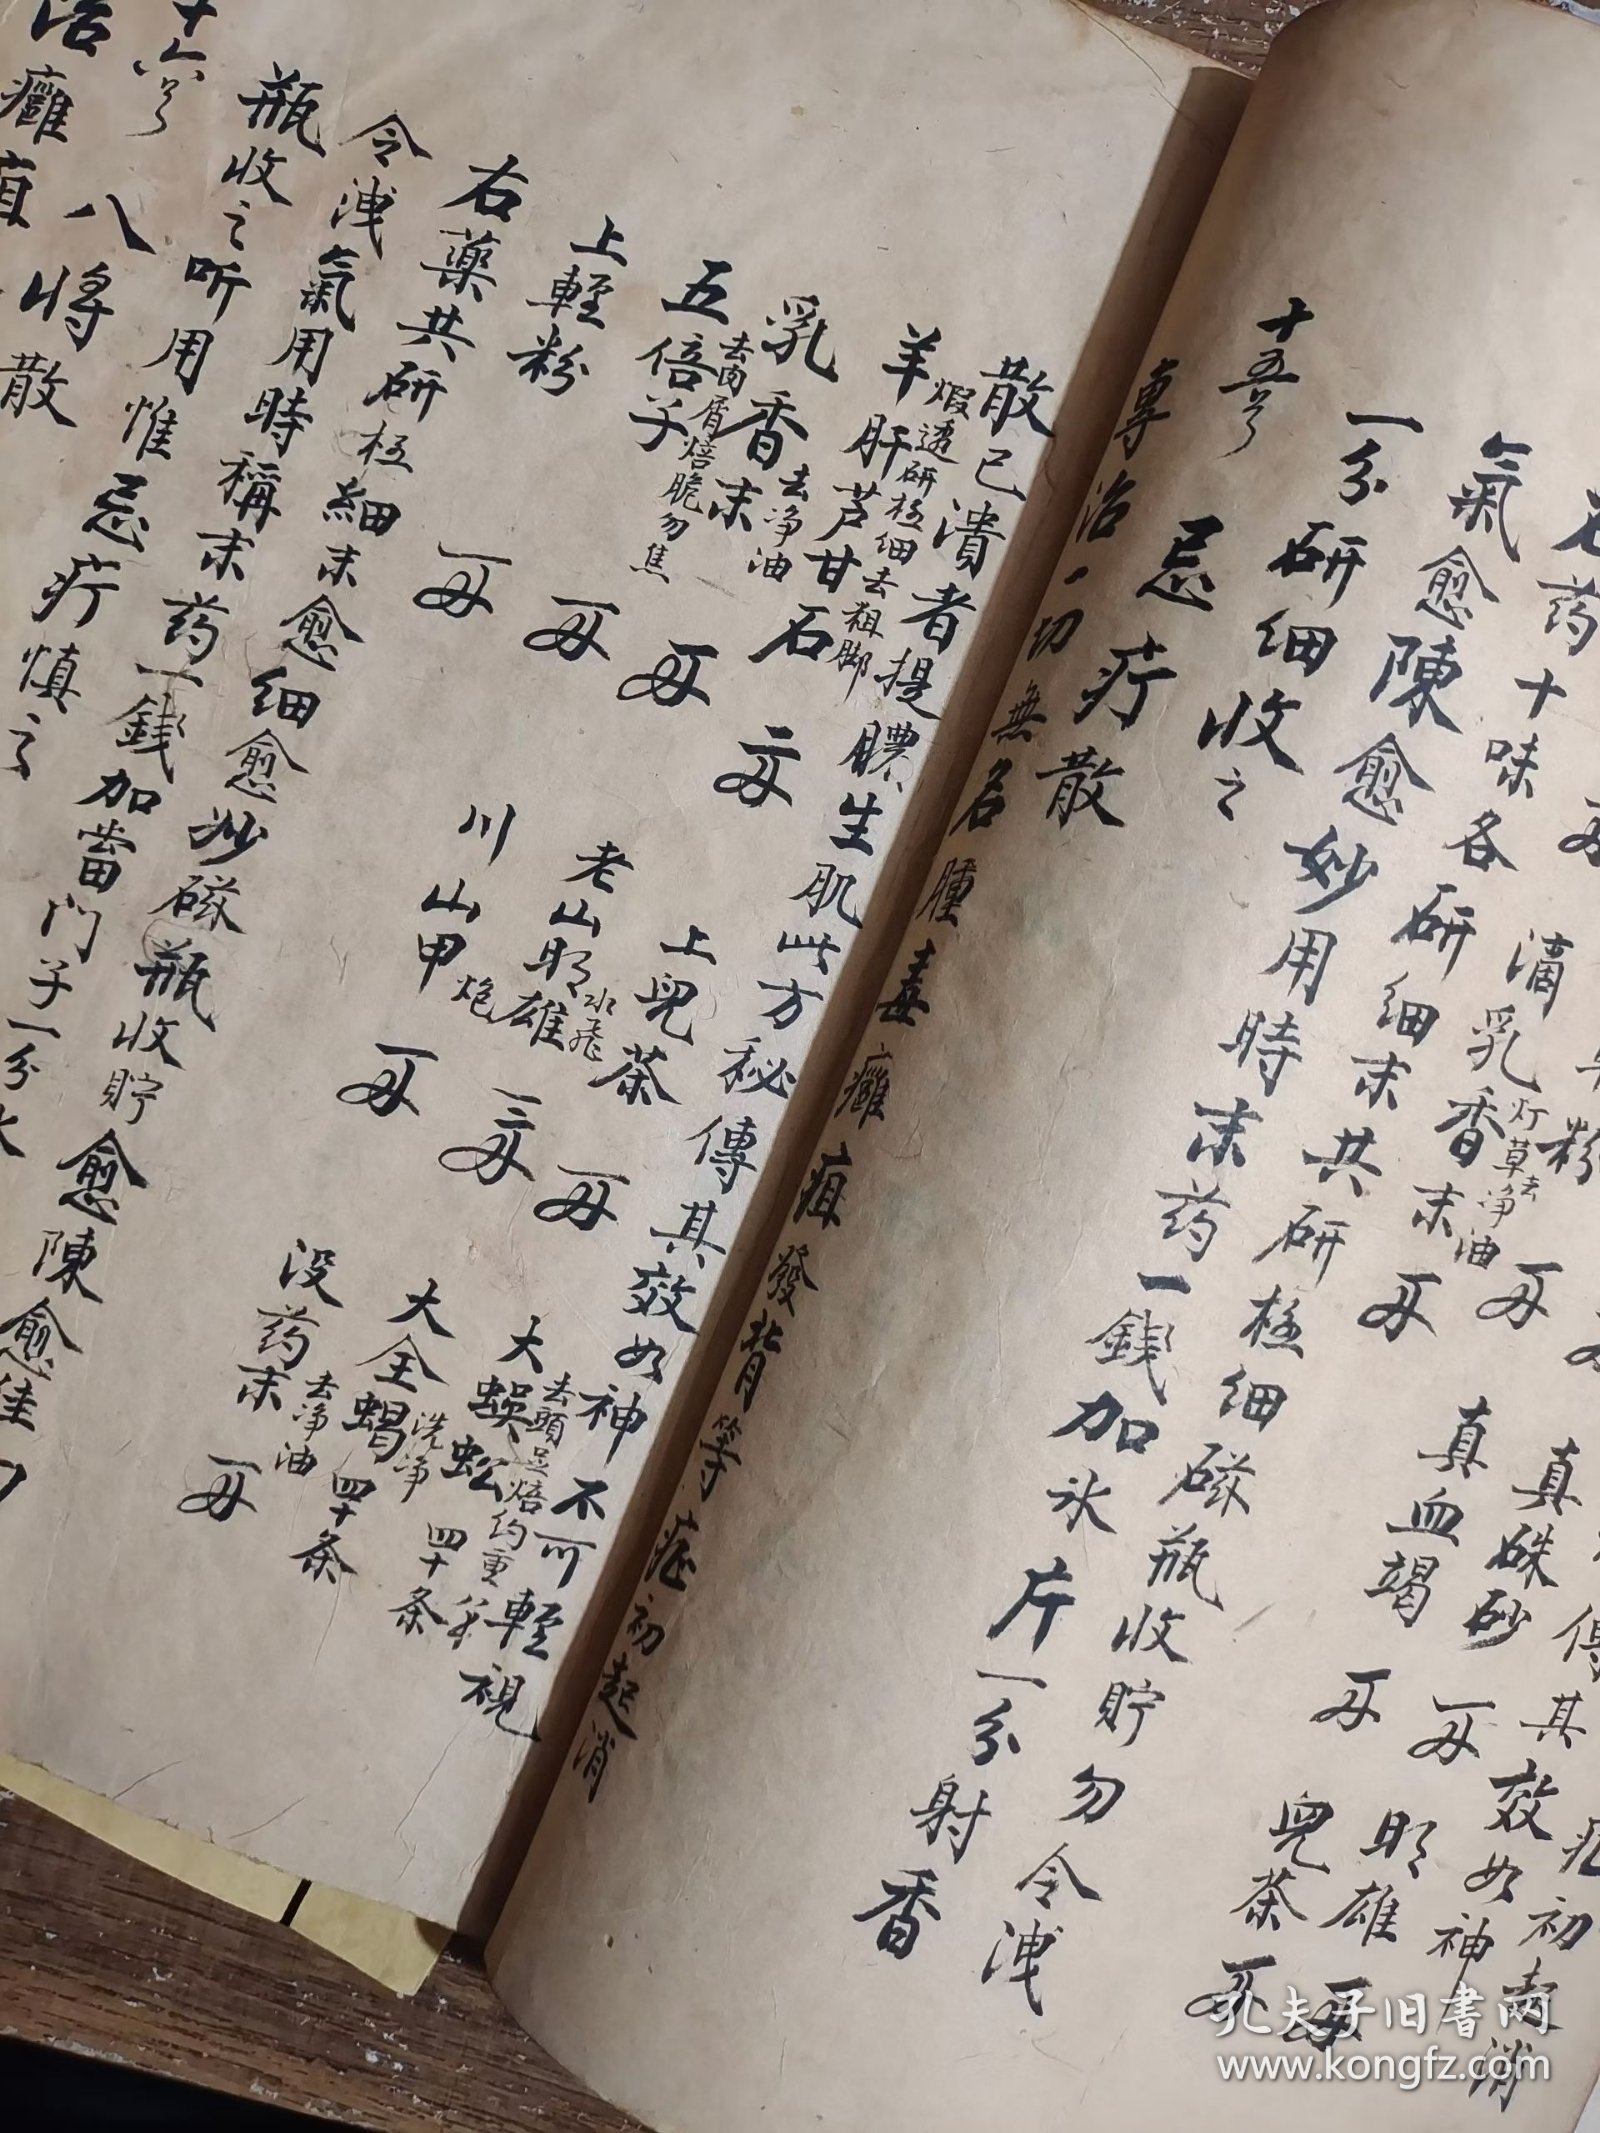 真硃砂 一两 明雄 一两
滴乳香末 灯草去净油 一两 真血竭 一两 兒茶 一两
右药十味各研细末共研極细磁瓶收貯勿令洩
氣愈陳愈妙用時末药一錢加氷片一分射香
一分研细收之
十五号 忌疔散
專治一切無名腫毒癰疽發背等症初起消
散已潰者提膿生肌此方秘傳其效如神不可輕視
羊肝芦甘石 煅透研極细去粗脚 二两 上兒茶 一两 大蜈蚣 去頭足焙 四十条
乳香末 去净油 一两 老山明雄 水飛 二两 大全蝎 洗净 四十条
五倍子 去内屑焙脆勿焦 一两 川山甲 炮 一两 没药末 去净油 一两
上輕粉 一两
右藥共研極細末愈细愈妙磁瓶收貯愈陳愈佳勿
令洩氣用時稱末药一錢加當门子一分氷
瓶收之听用惟忌疔慎之
十六号 八將散
治癰疽